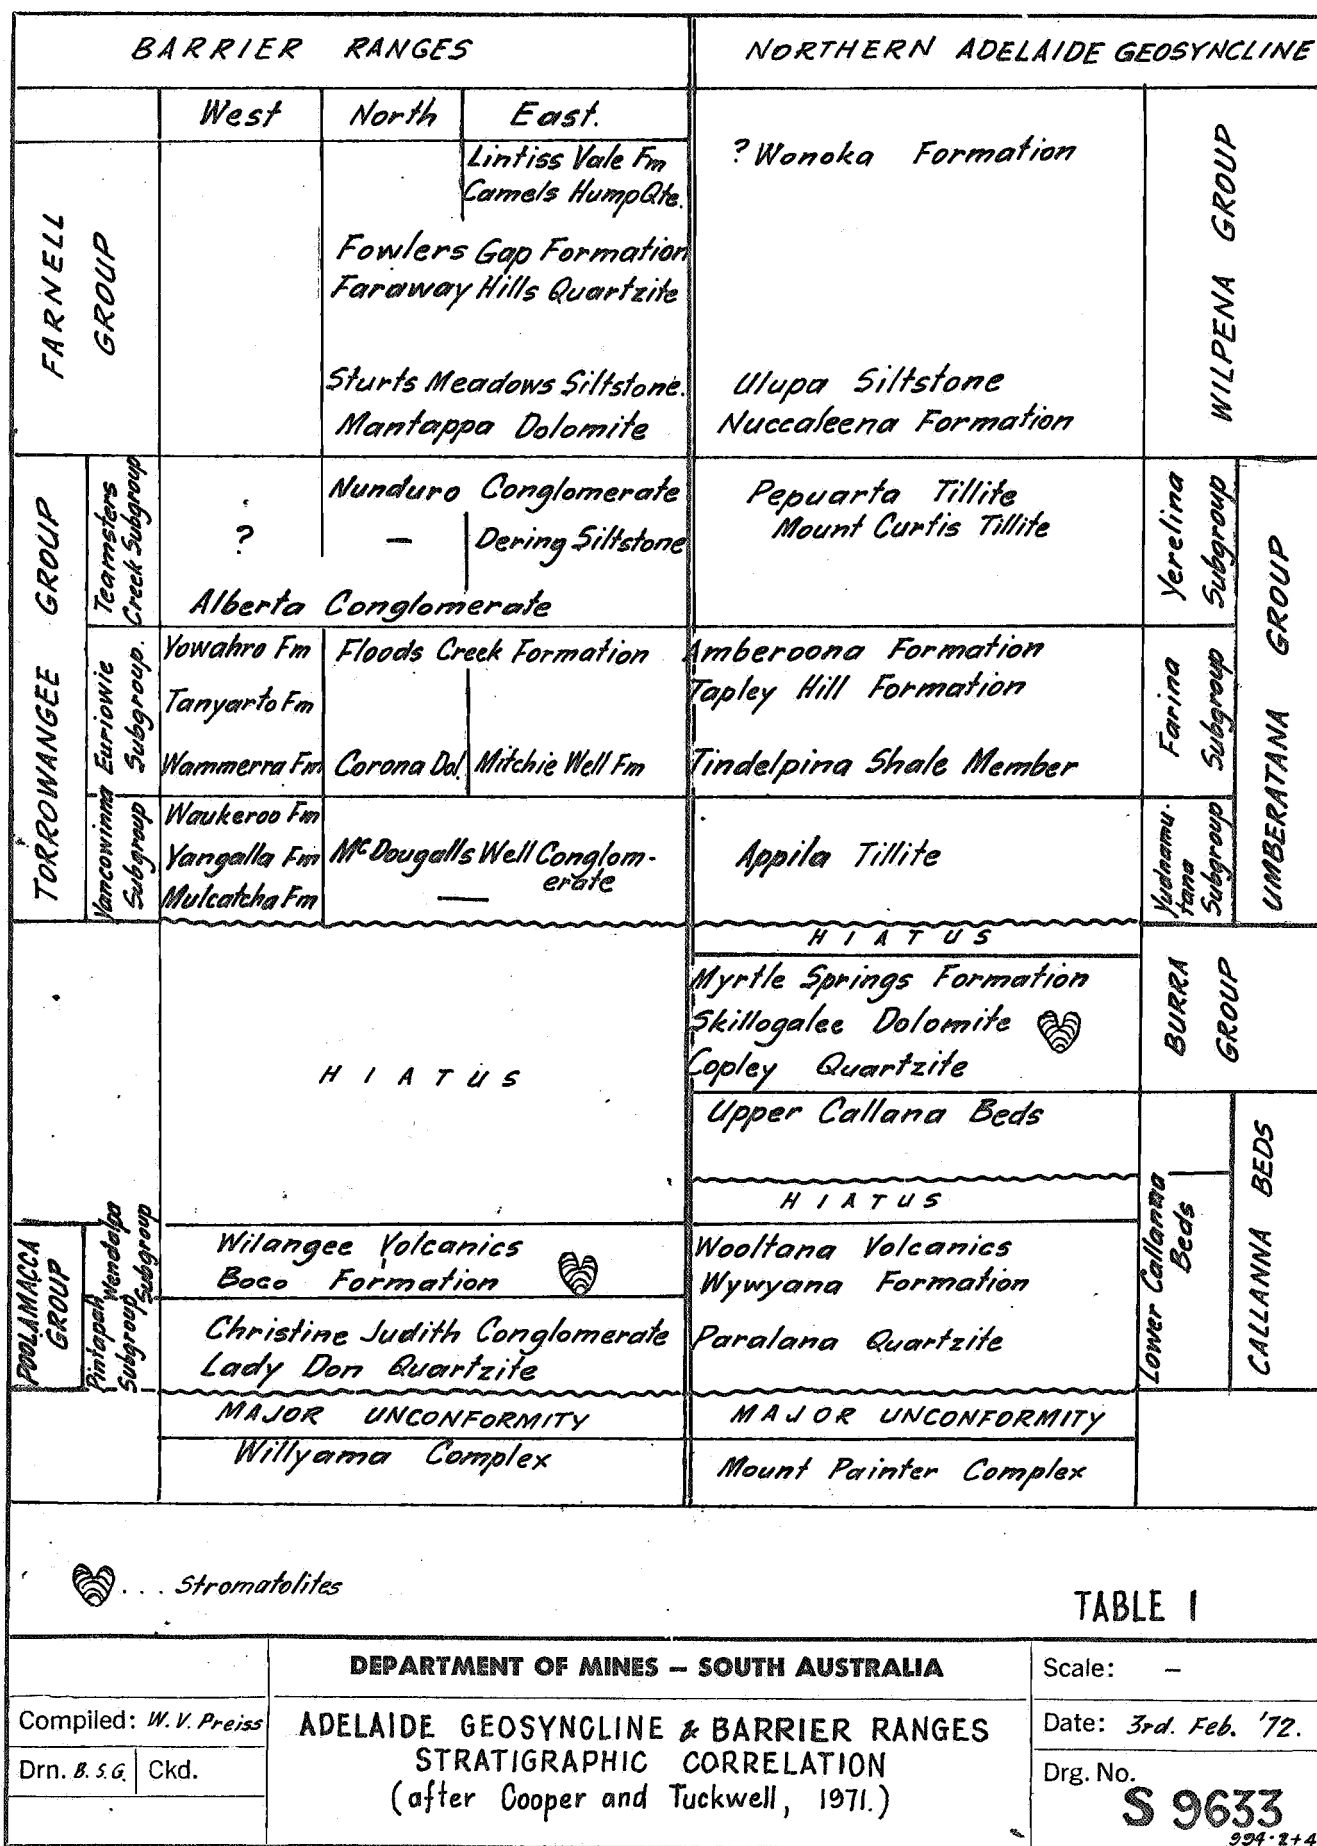 BARRIER RANGES
NORTHERN ADELAIDE GEOSYNCLINE
West
North
East.
FARNELL
GROUP
Lintiss Vale Fm
Camels Hump Qte.
Fowlers Gap Formation
Faraway Hills Quartzite
Sturts Meadows Siltstone.
Mantappa Dolomite
? Wonoka Formation
Ulupa Siltstone
Nuccaleena Formation
WILPENA GROUP
TORROWANGEE GROUP
Teamsters
Creek Subgroup
?
Nunduro Conglomerate
—
Dering Siltstone
Alberta Conglomerate
Pepuarta Tillite
Mount Curtis Tillite
Yerelina
Subgroup
UMBERATANA GROUP
Euriowie
Subgroup.
Yowahro Fm
Tanyarto Fm
Wammerra Fm
Floods Creek Formation
Corona Dol.
Mitchie Well Fm
Amberoona Formation
Tapley Hill Formation
Tindelpina Shale Member
Farina
Subgroup
Yancowinna
Subgroup
Waukeroo Fm
Yangalla Fm
Mulcatcha Fm
McDougalls Well Conglom-
erate
—
Appila Tillite
Yudnamu-
tana
Subgroup
HIATUS
HIATUS
Myrtle Springs Formation
Skillogalee Dolomite
Copley Quartzite
BURRA
GROUP
Upper Callana Beds
HIATUS
CALLANNA BEDS
Lower Callanna
Beds
POOLAMACCA
GROUP
Wendalpa
Subgroup
Wilangee Volcanics
Boco Formation
Wooltana Volcanics
Wywyana Formation
Pintapah
Subgroup
Christine Judith Conglomerate
Lady Don Quartzite
Paralana Quartzite
MAJOR UNCONFORMITY
MAJOR UNCONFORMITY
Willyama Complex
Mount Painter Complex
... Stromatolites
TABLE 1
DEPARTMENT OF MINES – SOUTH AUSTRALIA
Scale: –
Compiled: W. V. Preiss
ADELAIDE GEOSYNCLINE & BARRIER RANGES
STRATIGRAPHIC CORRELATION
(after Cooper and Tuckwell, 1971.)
Date: 3rd. Feb. '72.
Drn. B.S.G.
Ckd.
Drg. No.
S 9633
994·2+4